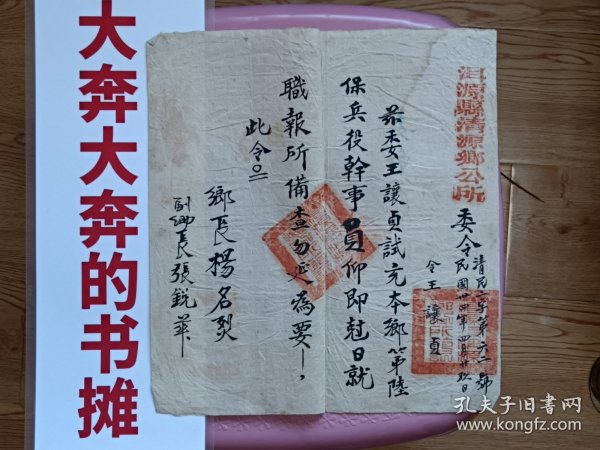 大奔大奔的书摊
洱源縣清源鄉公所
委令
清民二字第 號
民國卅四年四月廿 日
令王讓貞
茲委王讓貞試充本鄉第陸
保兵役幹事員仰即尅日就
職報所備查勿延為要
此令
鄉長楊名烈
副鄉長張鋭華
孔夫子旧书网
www.kongfz.com